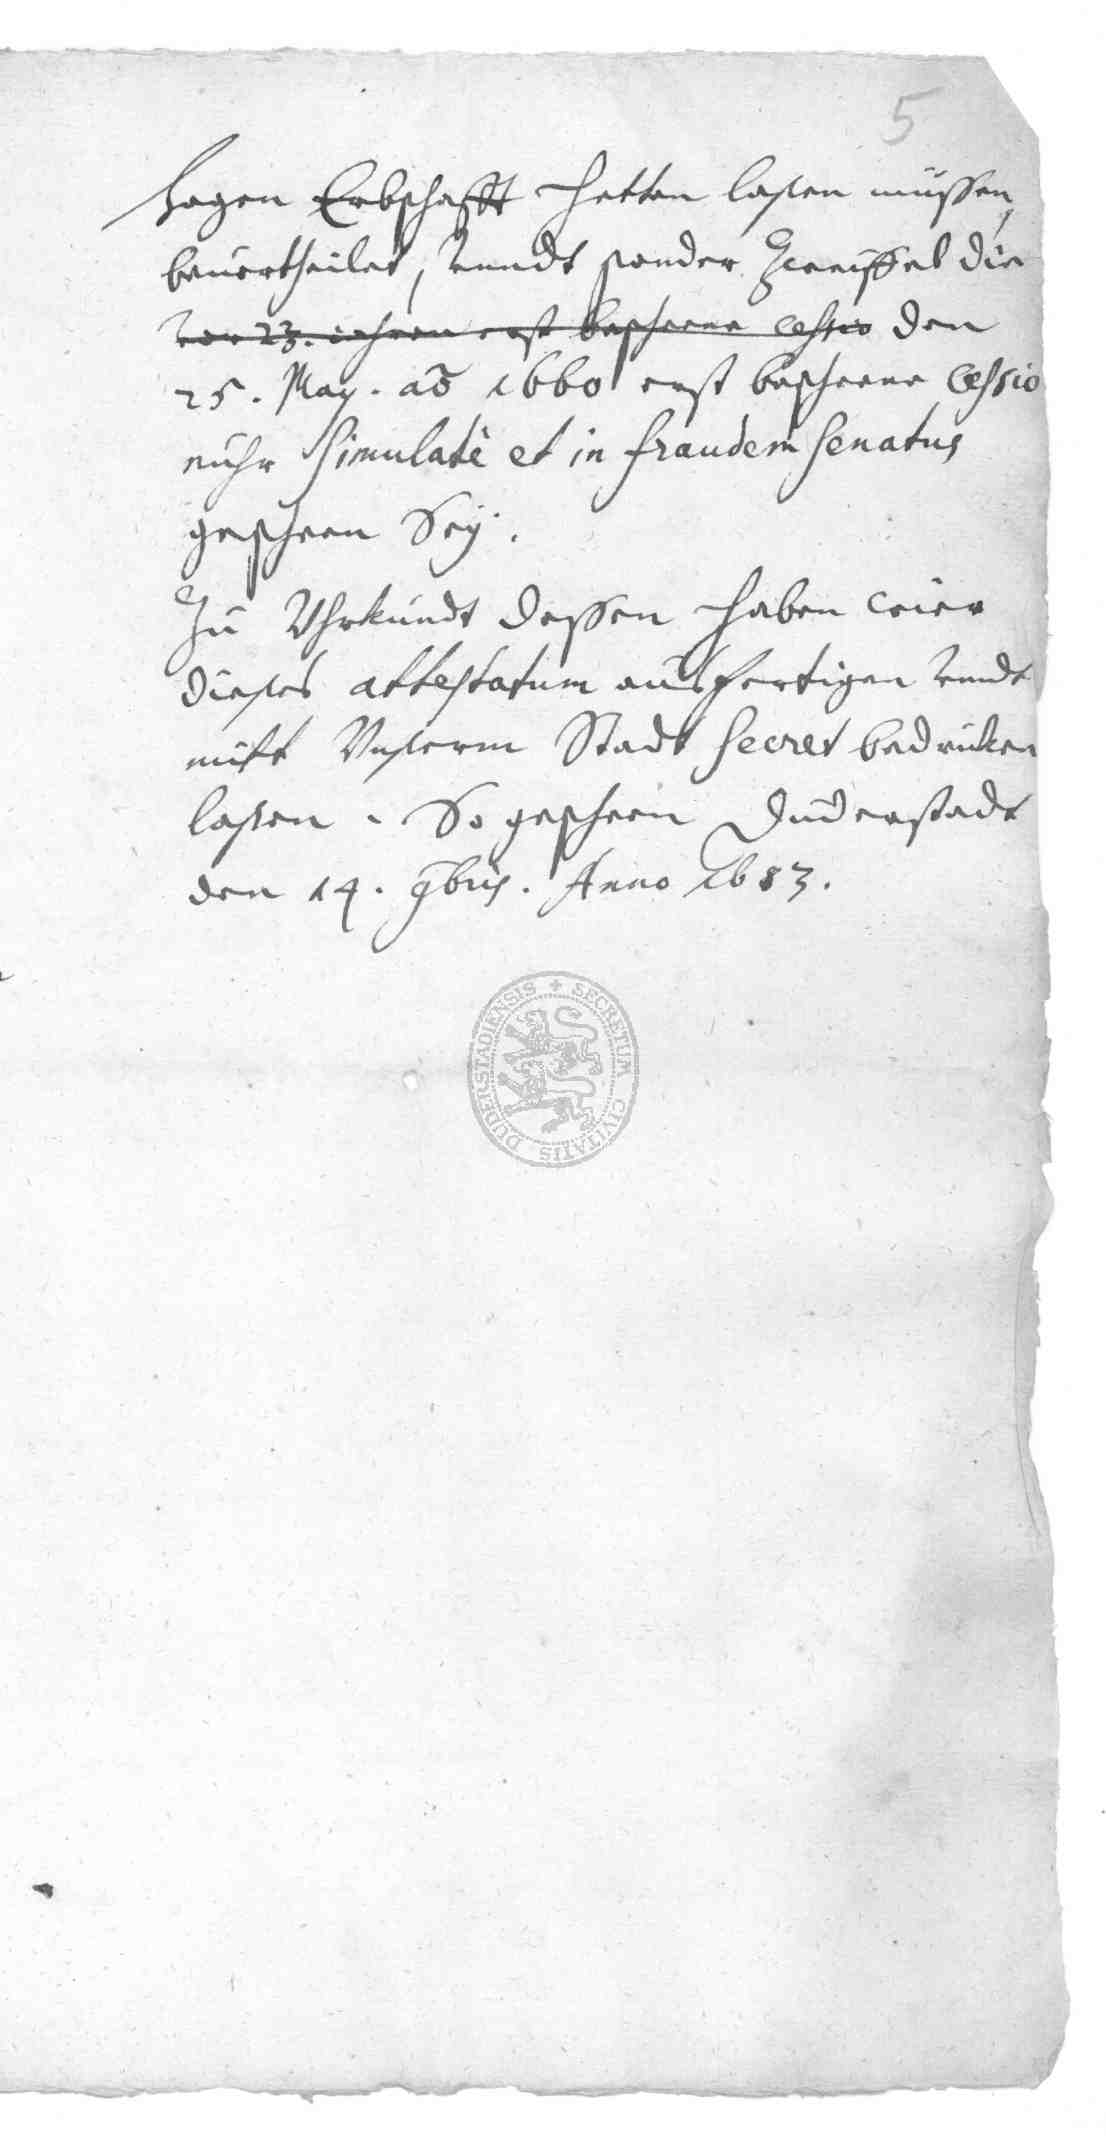 5
hagen Erbschafft hetten lassen müssen,
beuertheilet, vnndt sonder Zweiffel die
vor 23. iahren erst beschehene cessio den
25. May. ao 1660 erst beschehene Cessio
nuhr simulatè et in fraudem senatus
geschehen Seÿ.
Zu Vhrkundt dessen haben wier
dieses attestatum ausfertigen vnndt
mitt Vnserm Stadt secret bedrucken
lassen. So geschehen Duderstadt
den 14. 9bris. Anno 1683.
SECRETUM CIVITATIS DUDERSTADIENSIS